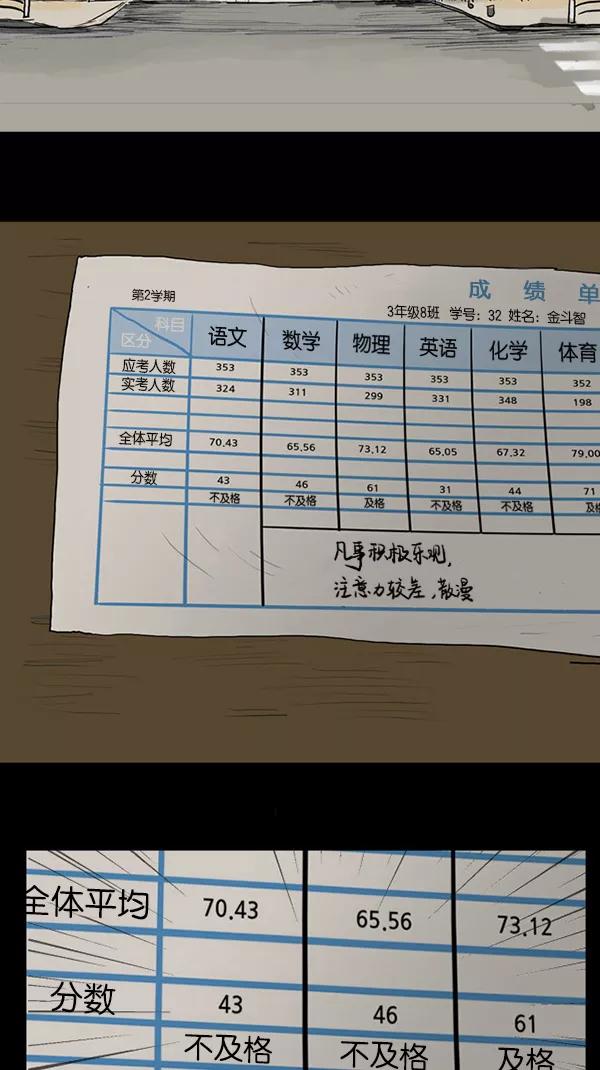 成绩单
第2学期
3年级8班 学号：32 姓名：金斗智
科目
区分
语文 数学 物理 英语 化学 体育
应考人数 353 353 353 353 353 352
实考人数 324 311 299 331 348 198
全体平均 70.43 65.56 73.12 65.05 67.32 79.00
分数 43 46 61 31 44 71
不及格 不及格 及格 不及格 不及格 及格
凡事积极乐观,
注意力较差,散漫
全体平均 70.43 65.56 73.12
分数 43 46 61
不及格 不及格 及格